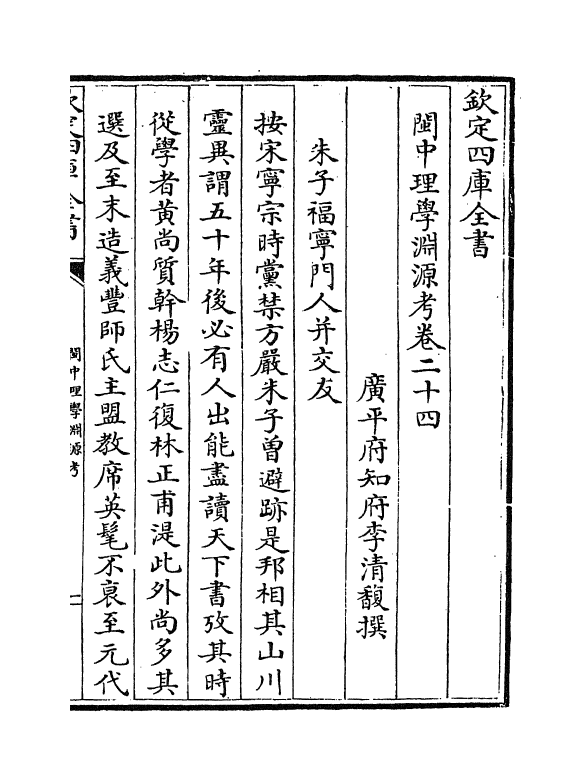 欽定四庫全書
閩中理學淵源考卷二十四
廣平府知府李清馥撰
朱子福寧門人并交友
按宋寧宗時黨禁方嚴朱子曽避跡是邦相其山川
靈異謂五十年後必有人出能盡讀天下書攷其時
從學者黄尚質幹楊志仁復林正甫湜此外尚多其
選及至末造義豐師氏主盟教席英髦不衰至元代
欽定四庫全書
閩中理學淵源考
一